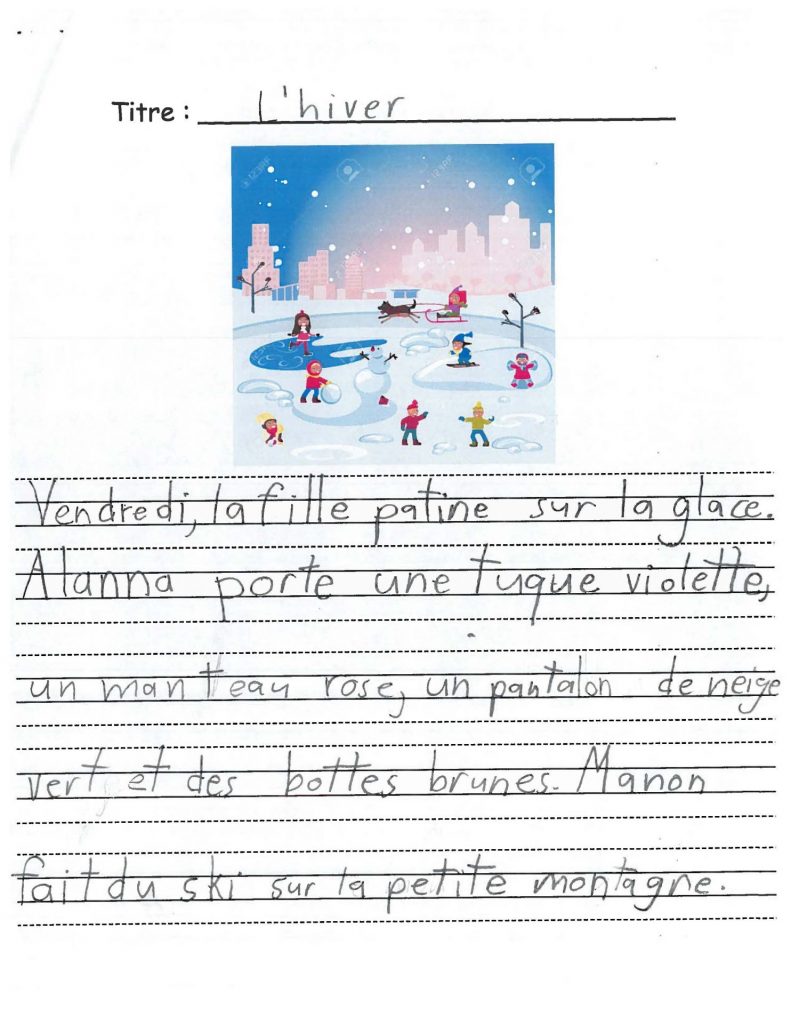 Titre : L'hiver
123RF
123RF
Vendredi, la fille patine sur la glace.
Alanna porte une tuque violette,
un manteau rose, un pantalon de neige
vert, et des bottes brunes. Manon
fait du ski sur la petite montagne.